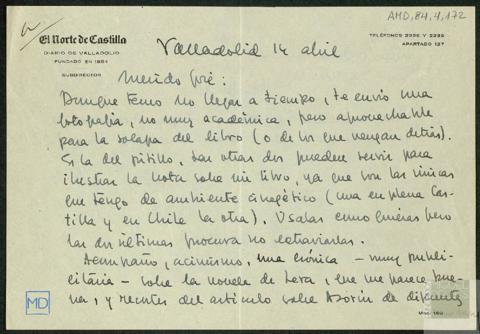 AMD, 84, 4, 172
El Norte de Castilla
DIARIO DE VALLADOLID
FUNDADO EN 1854
SUBDIRECTOR
TELÉFONOS 2336 Y 2235
APARTADO 127
Valladolid 14 abril
Querido José:
Aunque temo no llegar a tiempo, te envío una
fotografía, no muy académica, pero aprovechable
para la solapa del libro (o de los que vengan detrás).
Es la del pitillo. Las otras dos pueden servir para
ilustrar la nota sobre mi libro, ya que son las únicas
que tengo de ambiente cinegético (una en plena Cas-
tilla y en Chile la otra). Úsalas como quieras pero
las dos últimas procura no extraviarlas.
Acompaño, asimismo, una crónica — muy publi-
citaria — sobre la novela de Lera, que me parece bue-
na, y recortes del artículo sobre Azorín de
MD